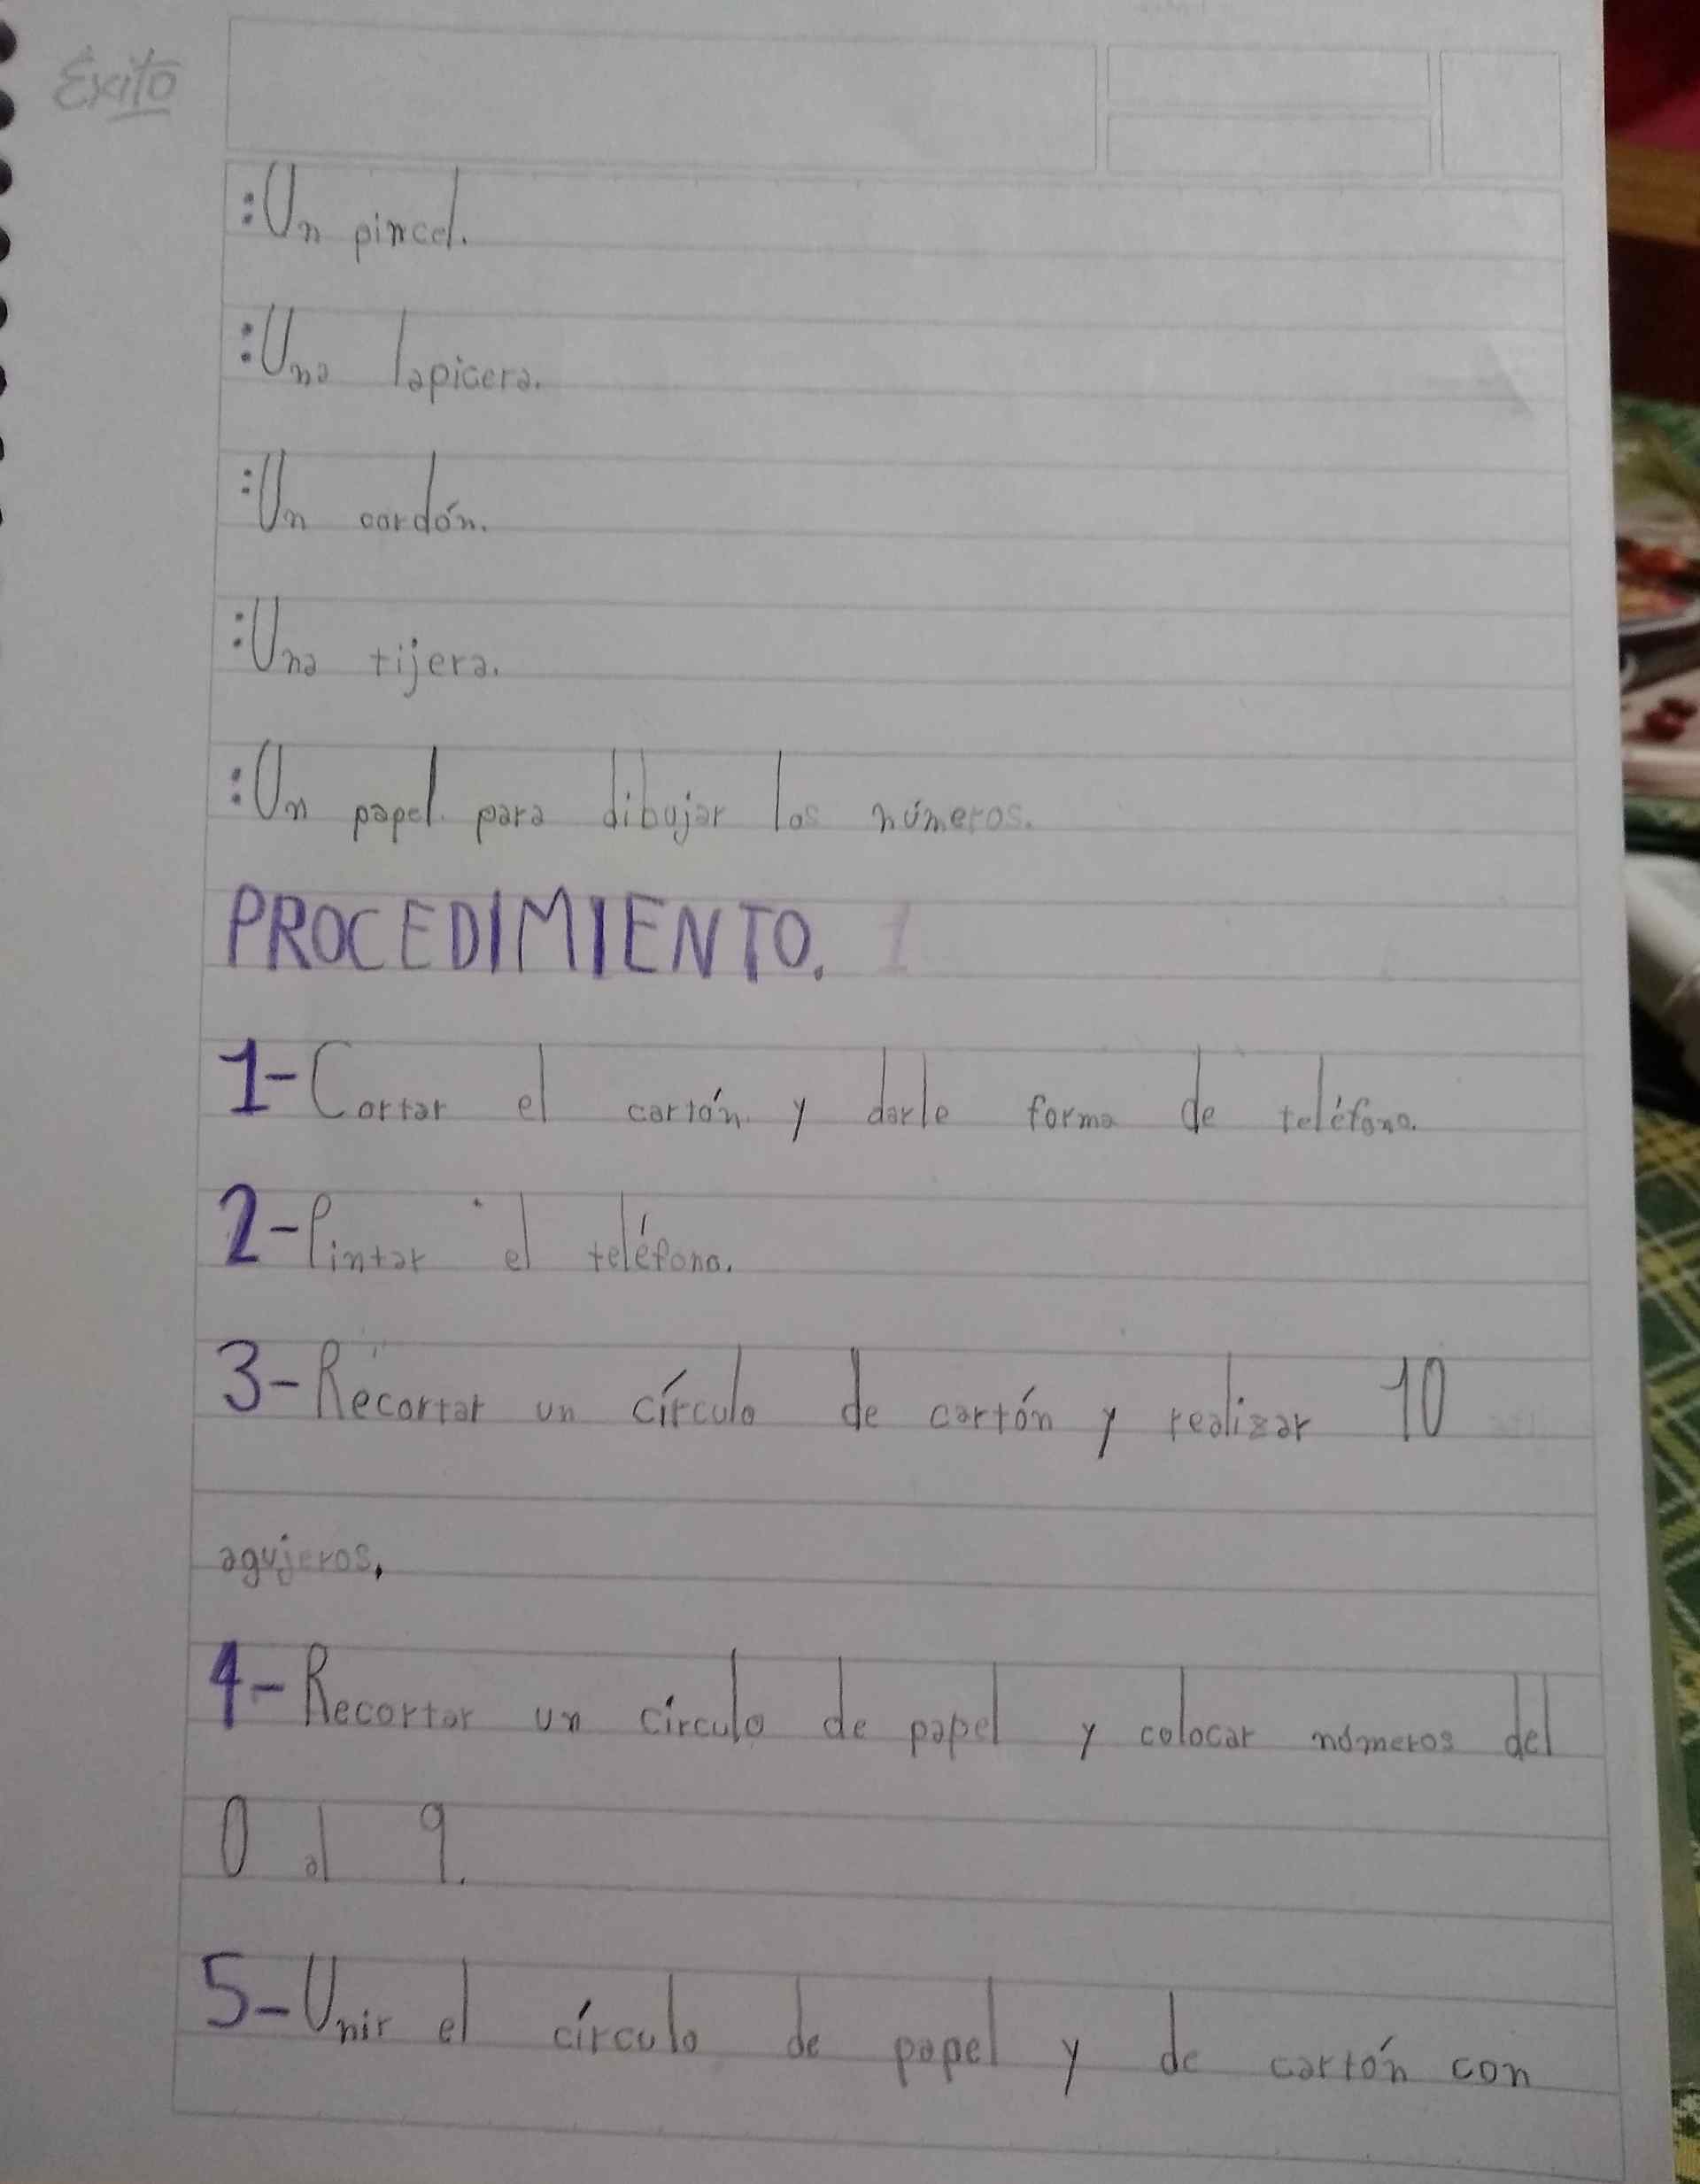 Éxito
:Un pincel.
:Una lapicera.
:Un cordón.
:Una tijera.
:Un papel para dibujar los números.
PROCEDIMIENTO.
1-Cortar el cartón y darle forma de teléfono.
2-Pintar el teléfono.
3-Recortar un círculo de cartón y realizar 10
agujeros.
4-Recortar un círculo de papel y colocar números del
0 al 9.
5-Unir el círculo de papel y de cartón con